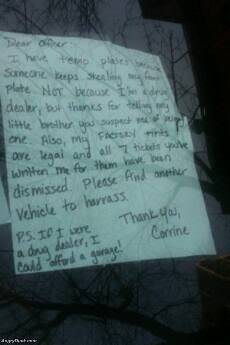 Dear Officer:
I have temp plates because
Someone keeps stealing my front
Plate NOT because I'm a drug
dealer, but thanks for telling my
little brother you suspect me of being
one. Also, my FACTORY tints
are legal and all 7 tickets you've
written me for them have been
dismissed. Please find another
Vehicle to harrass.
Thank you,
Corrine
P.S. If I were
a drug dealer, I
could afford a garage!